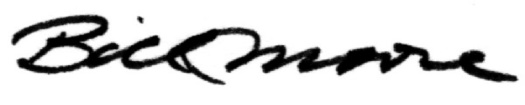 Bill Moore